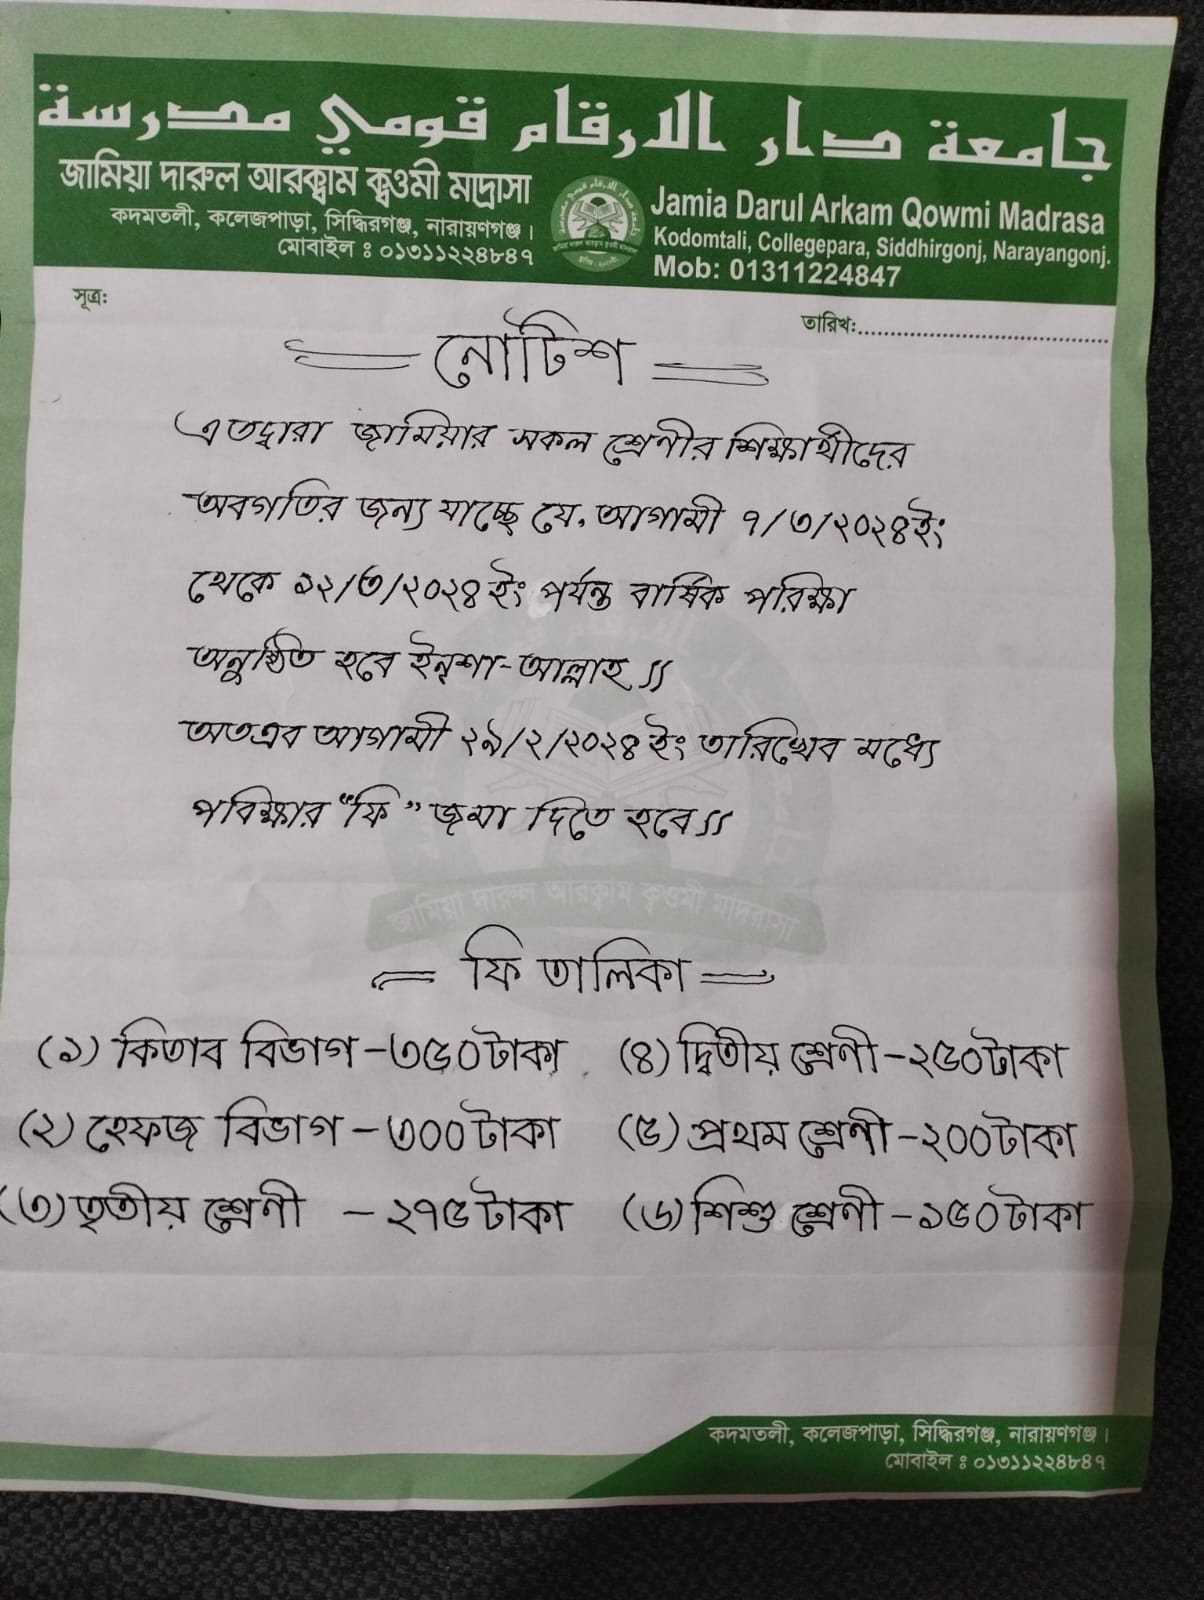 جامعة دار الارقام قومي مدرسة
জামিয়া দারুল আরক্বাম ক্বওমী মাদ্রাসা
কদমতলী, কলেজপাড়া, সিদ্ধিরগঞ্জ, নারায়ণগঞ্জ।
মোবাইল ঃ ০১৩১১২২৪৮৪৭
Jamia Darul Arkam Qowmi Madrasa
Kodomtali, Collegepara, Siddhirgonj, Narayangonj.
Mob: 01311224847
সূত্র:
তারিখ:..........................................
নোটিশ
এতদ্বারা জামিয়ার সকল শ্রেণীর শিক্ষার্থীদের
অবগতির জন্য যাচ্ছে যে, আগামী ৭/৩/২০২৪ইং
থেকে ১২/৩/২০২৪ ইং পর্যন্ত বার্ষিক পরিক্ষা
অনুষ্ঠিত হবে ইনশা-আল্লাহ।।
অতএব আগামী ২৯/২/২০২৪ ইং তারিখের মধ্যে
পরিক্ষার "ফি" জমা দিতে হবে।।
জামিয়া দারুল আরক্বাম ক্বওমী মাদরাসা
ফি তালিকা
(১) কিতাব বিভাগ - ৩৫০ টাকা
(২) হেফজ বিভাগ - ৩০০ টাকা
(৩) তৃতীয় শ্রেণী - ২৭৫ টাকা
(৪) দ্বিতীয় শ্রেণী - ২৫০ টাকা
(৫) প্রথম শ্রেণী - ২০০ টাকা
(৬) শিশু শ্রেণী - ১৫০ টাকা
কদমতলী, কলেজপাড়া, সিদ্ধিরগঞ্জ, নারায়ণগঞ্জ।
মোবাইল ঃ ০১৩১১২২৪৮৪৭